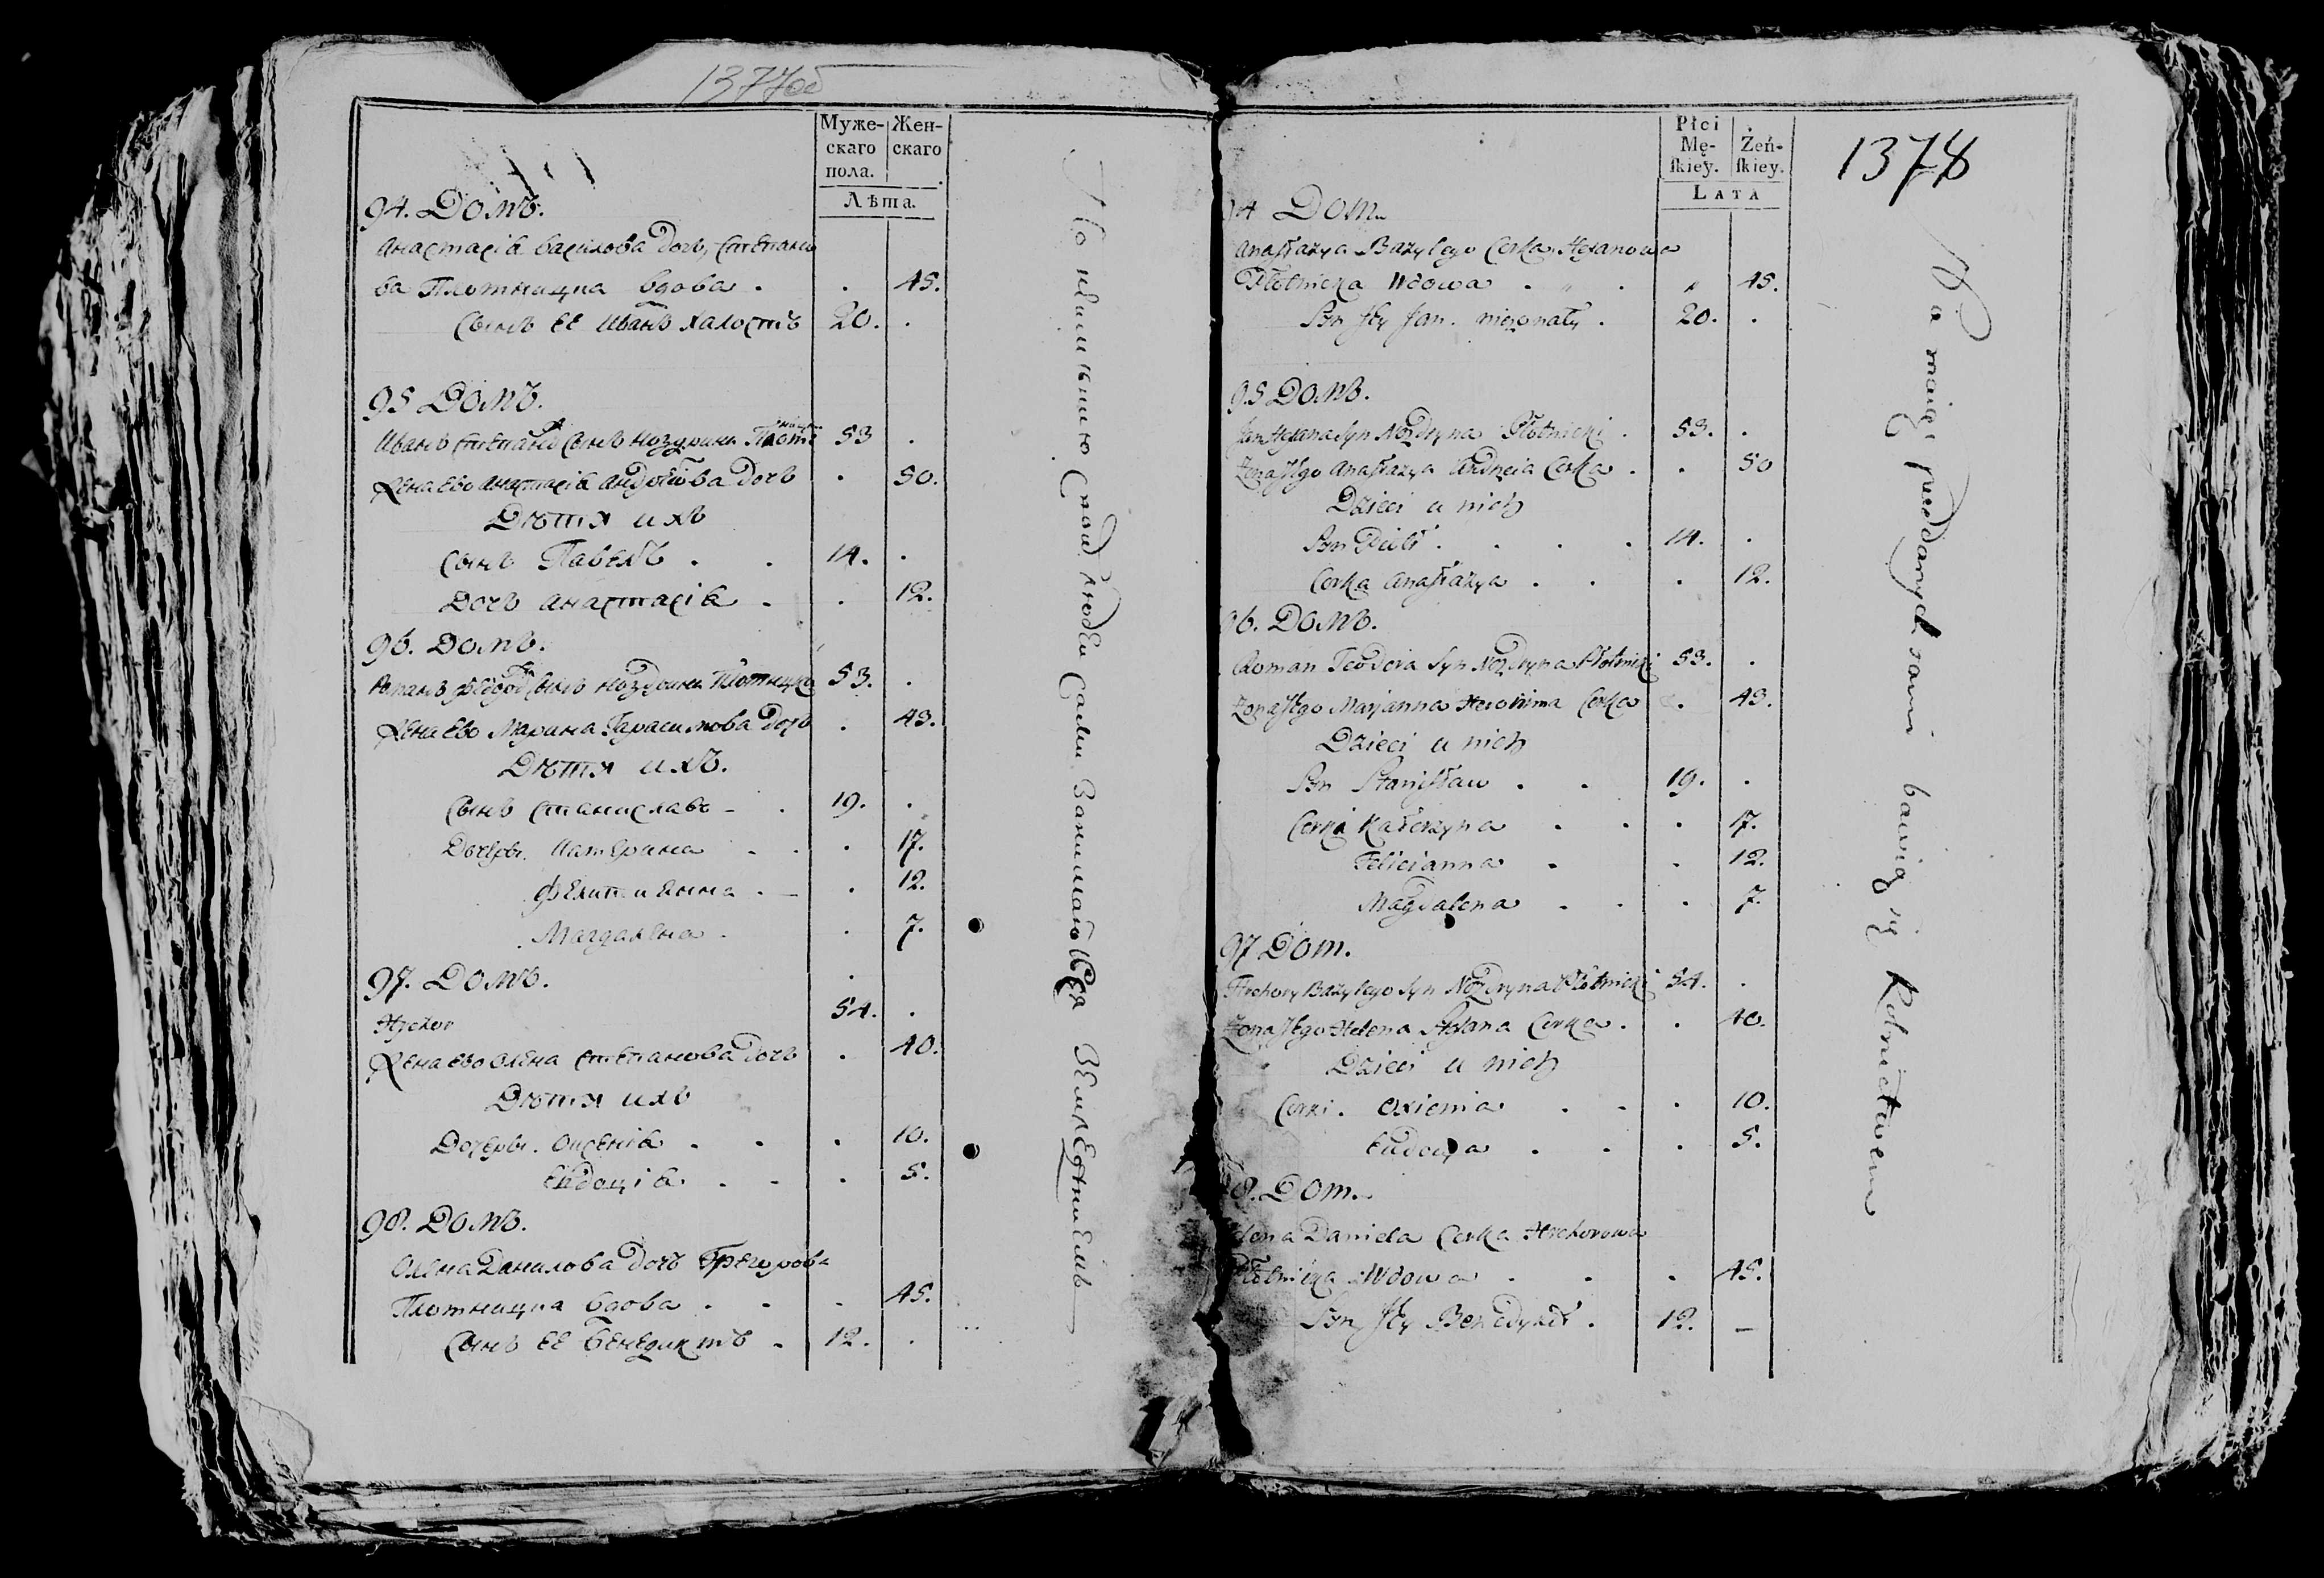 1377об
Муже-скаго пола. Жен-скаго
Лѣта.
94. Домъ.
Анастасіа Василова дочь, Степано
ва Плотницка вдова . . 45.
Сынъ ее Иванъ халостъ 20. .
95 Домъ.
Иванъ Степано Сынъ Ноздрина Плот 53 .
Жена Ево Анастасіа Андреева дочь . 50.
Дѣтя ихъ
Сынъ Павелъ . . 14. .
Дочь Анастасіа . . 12.
96. Домъ.
Романъ Федоро Сынъ Ноздрина Плотницки 53. .
Жена Ево Марина Гарасимова дочь . 43.
Дѣтя ихъ.
Сынъ Станиславъ - . 19. .
Дочеры. Катерина . . . 17.
Фелитиянна . - . 12.
Магдалена . . 7.
97. Домъ.
Hrehor 54. .
Жена Ево Олена Степанова дочь . 40.
Дѣтя ихъ
Дочеры. Оксеніа . . . 10.
Евдоціа. . . . 5.
98. Домъ.
Олена Данилова дочь Грегорова
Плотницка вдова . . . 45.
Сынъ ее Бенедиктъ . 12. .
людей сами занимаются земледѣлиемъ
1378
Płci Mę-ſkiey. Żeń-ſkiey.
LATA
94 Dom.
Anastazya Bazylego Corka Stefanowa
Płotnicka Wdowa . . 45.
Syn Jey Jan. niezonaty . 20. .
95 Домъ.
Jan Stefana Syn Nozdryna Płotnicki . 53. .
Zona Jego Anastazya Andrzeia Corka . . 50
Dzieci u nich
Syn Piotr . . . . 14. .
Corka Anastazya . . . 12.
96. Домъ.
Roman Teodora Syn Nozdryna Płotnicki 53. .
Zona Jego Marjanna Heronima Corka . 43.
Dzieci u nich
Syn Stanisław . . 19. .
Corki Katerzyna . . . 17.
Felicianna . . 12.
Magdalena . . . 7.
97 Dom.
Hrehory Bazylego Syn Nozdryna Płotnicki 54. .
Zona Jego Helena Stefana Corka . . 40.
Dzieci u nich
Corki. Oxienia . . . 10.
Eudocya . . . 5.
8. Dom.
lena Daniela Corka Hrehorowa
Płotnicka Wdowa . . . 45.
Syn Jey Benedykt . 12. –
maią poddanych sami bawią się Rolnictwem